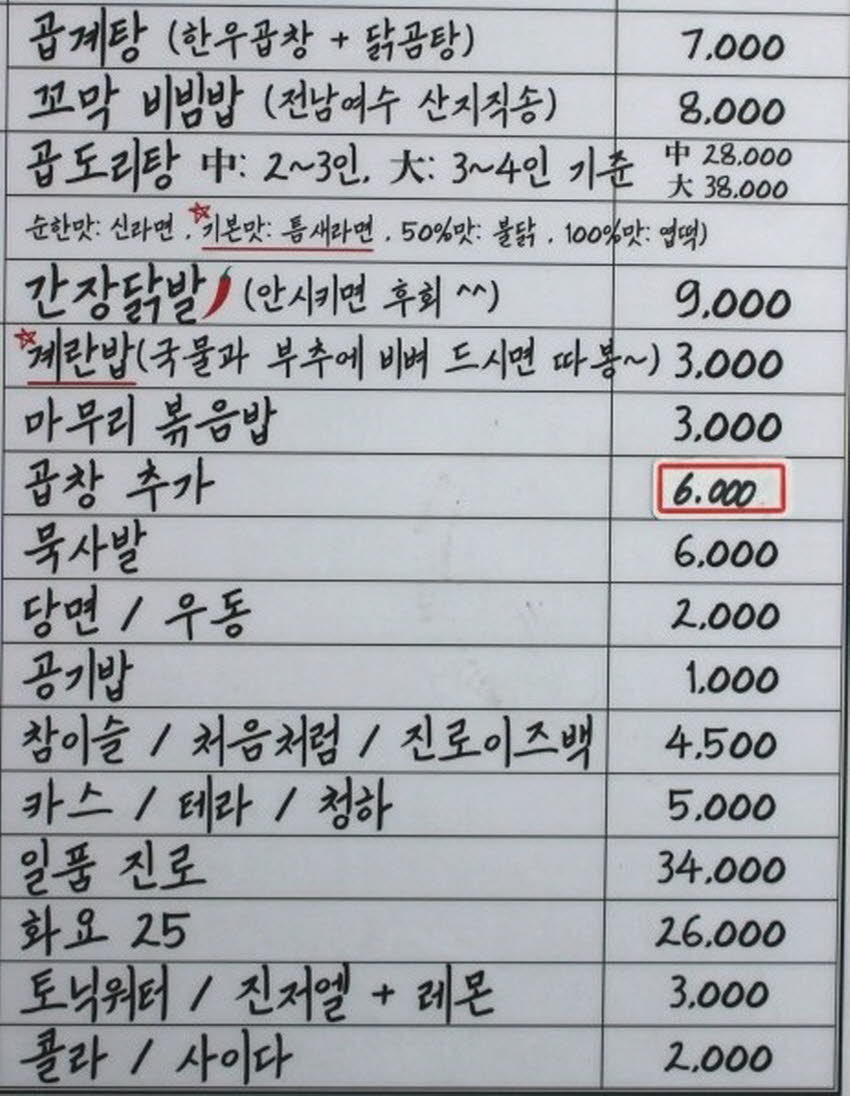 곱계탕 (한우곱창 + 닭곰탕) 7,000
꼬막 비빔밥 (전남여수 산지직송) 8,000
곱도리탕 中: 2~3인, 大: 3~4인 기준 中 28,000
大 38,000
순한맛: 신라면 , ☆기본맛: 틈새라면 , 50%맛: 불닭 , 100%맛: 엽떡)
간장닭발 (안시키면 후회 ^^) 9,000
☆계란밥(국물과 부추에 비벼 드시면 따봉~) 3,000
마무리 볶음밥 3,000
곱창 추가 6.000
묵사발 6,000
당면 / 우동 2,000
공기밥 1,000
참이슬 / 처음처럼 / 진로이즈백 4,500
카스 / 테라 / 청하 5,000
일품 진로 34,000
화요 25 26,000
토닉워터 / 진저엘 + 레몬 3,000
콜라 / 사이다 2,000